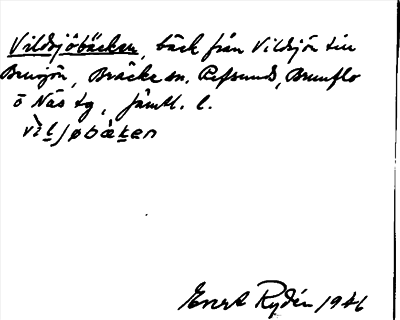 Vildsjöbäcken, bäck från Vildsjön till
Brunjön, Bräcke sn, Refsunds, Brunflo
o Näs tg, Jämtl. l.
vìlʃøbäken
Evert Rydén 1946